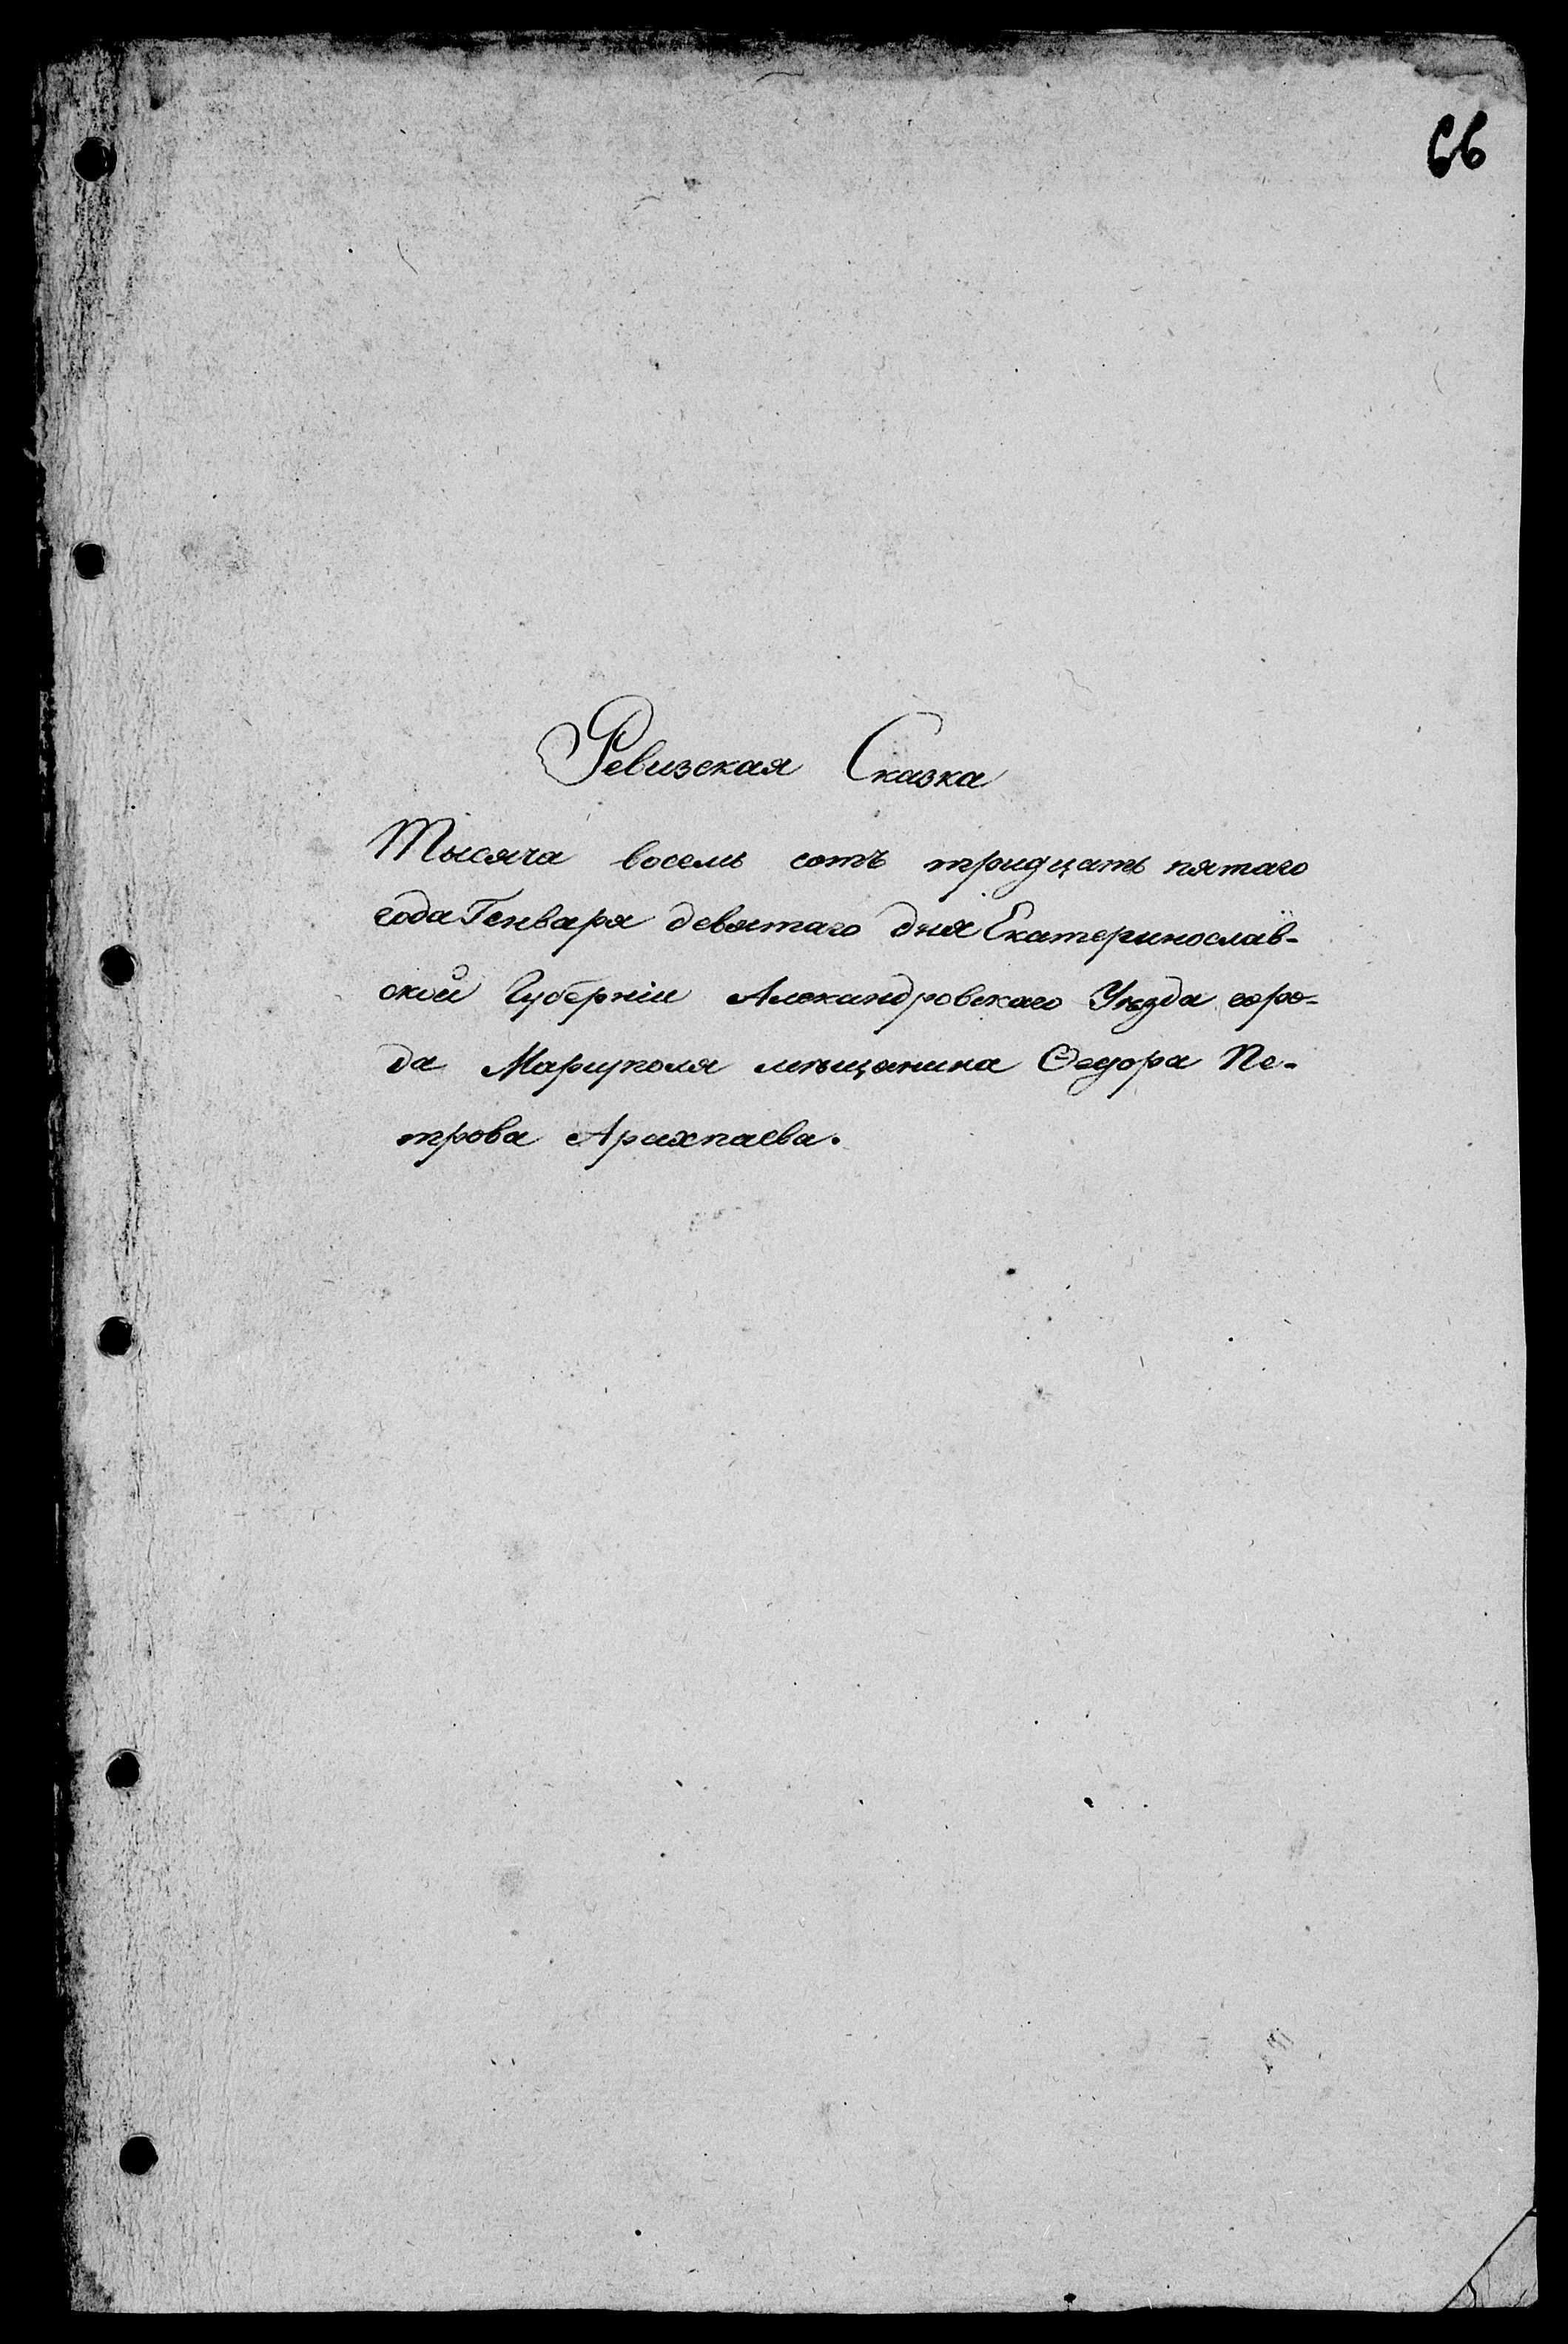 66
Ревизская Сказка
Тысяча восемь сотъ тридцать пятаго
года Генваря девятаго дня Екатеринослав-
ской Губерніи Александровскаго Уѣзда горо-
да Маріуполя мѣщанина Ѳедора Пе-
трова Арихпаева.